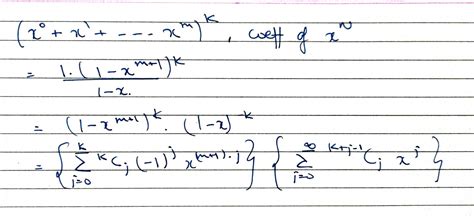 (x⁰ + x¹ + ---- xᵐ)ᵏ , coeff of xᴺ
= 1. (1 - xᵐ⁺¹)ᵏ / 1-x.
= (1 - xᵐ⁺¹)ᵏ . (1-x)⁻ᵏ
= { ∑_{j=0}^{k} ᵏC_j (-1)ʲ x^{(m+1).j} } { ∑_{j=0}^{∞} ᵏ⁺ʲ⁻¹C_j xʲ }